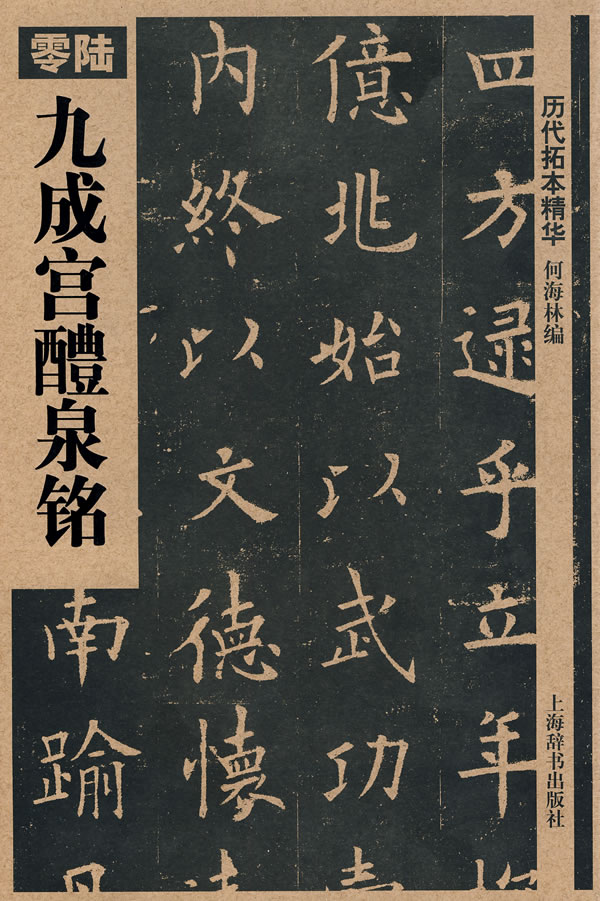 零陆
九成宫醴泉铭
历代拓本精华
何海林编
上海辞书出版社
四方逮乎立年
億兆始以武功
内終以文德懷
南踰